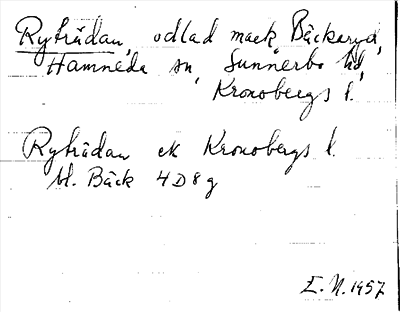 Rytrådan, odlad mark, Bäckaryd,
Hamneda sn, Sunnerbo hd,
Kronobergs l.
Rytrådan ek Kronobergs l.
bl. Bäck 4D8g
E.N. 1957